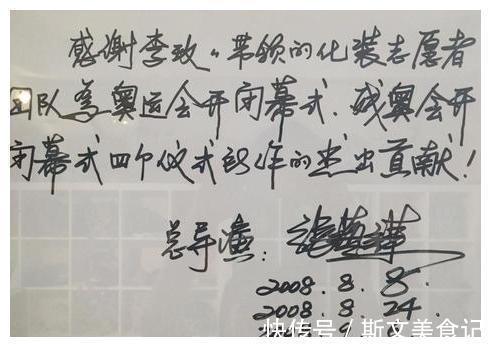 感谢李玫。带领的化装志愿者
团队为奥运会开闭幕式、残奥会开
闭幕式四个仪式所作的杰出贡献！
总导演：张艺谋
2008.8.8.
2008.8.24.
快传号/斯文美食记